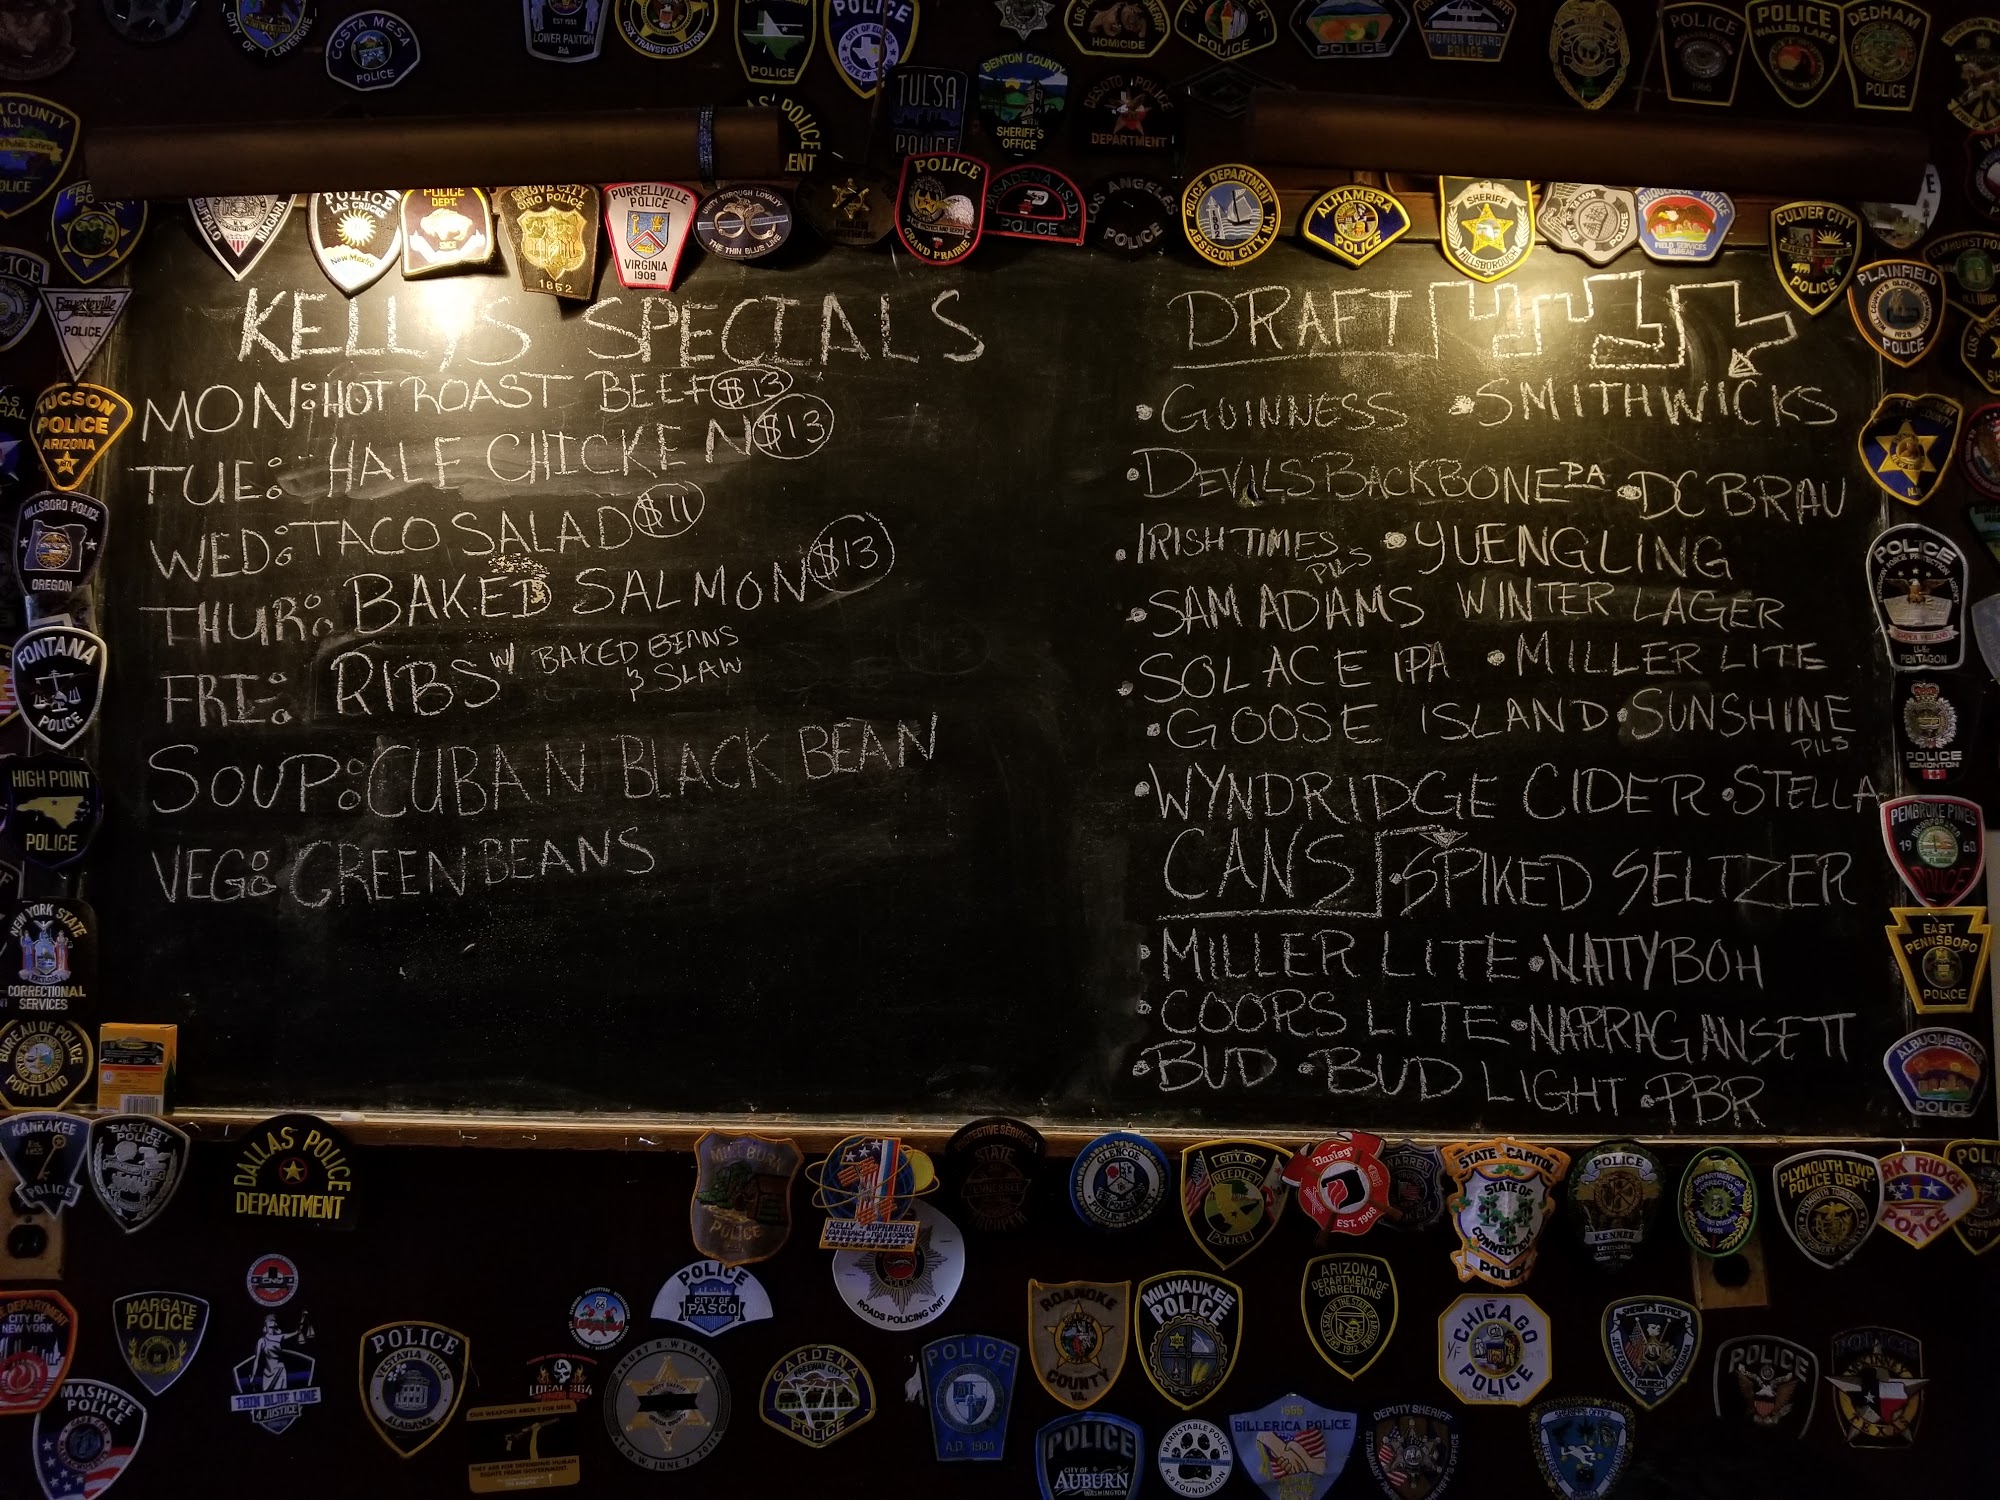 COSTA MESA
POLICE
LOWER PAXTON
CSX TRANSPORTATION
POLICE
POLICE
HOMICIDE
POLICE
HONOR GUARD
POLICE
POLICE
POLICE
WALLED LAKE
DEDHAM
POLICE
TULSA
POLICE
BENTON COUNTY
SHERIFF'S
OFFICE
DESOTO POLICE
DEPARTMENT
BUFFALO
NIAGARA
POLICE
LAS CRUCES
New Mexico
POLICE
DEPT.
GROVE CITY
OHIO POLICE
1852
PURCELLVILLE
POLICE
VIRGINIA
1908
UNITY THROUGH LOYALTY
THE THIN BLUE LINE
POLICE
GRAND PRAIRIE
PASADENA I.S.D.
POLICE
LOS ANGELES
POLICE
POLICE DEPARTMENT
ABSECON CITY, N.J.
ALHAMBRA
POLICE
SHERIFF
HILLSBOROUGH
ALBUQUERQUE POLICE
FIELD SERVICES
BUREAU
CULVER CITY
POLICE
PLAINFIELD
POLICE
KELLY'S SPECIALS
MON: HOT ROAST BEEF $13
TUE: HALF CHICKEN $13
WED: TACO SALAD $11
THUR: BAKED SALMON $13
FRI: RIBS W/ BAKED BEANS
& SLAW
SOUP: CUBAN BLACK BEAN
VEG: GREEN BEANS
DRAFT
• GUINNESS • SMITHWICKS
• DEVILS BACKBONE PA • DC BRAU
• IRISH TIMES PILS • YUENGLING
• SAM ADAMS WINTER LAGER
• SOLACE IPA • MILLER LITE
• GOOSE ISLAND • SUNSHINE PILS
• WYNDRIDGE CIDER • STELLA
CANS • SPIKED SELTZER
• MILLER LITE • NATTYBOH
• COORS LITE • NARRAGANSETT
• BUD • BUD LIGHT • PBR
Fayetteville
POLICE
TUCSON
POLICE
ARIZONA
HILLSBORO POLICE
OREGON
FONTANA
POLICE
HIGH POINT
POLICE
NEW YORK STATE
CORRECTIONAL
SERVICES
BUREAU OF POLICE
PORTLAND
POLICE
PENTAGON
POLICE
EDMONTON
PEMBROKE PINES
1960
POLICE
EAST
PENNSBORO
POLICE
ALBUQUERQUE
POLICE
KANKAKEE
POLICE
BARTLETT
POLICE
DALLAS POLICE
DEPARTMENT
MILLBURN
POLICE
KELLY KORNIENKO
PROTECTIVE SERVICES
GLENCOE
PUBLIC SAFETY
CITY OF
REEDLEY
POLICE
EST. 1908
STATE CAPITOL
STATE OF
CONNECTICUT
POLICE
POLICE
KENNER
PLYMOUTH TWP.
POLICE DEPT.
POLICE
MARGATE
POLICE
THIN BLUE LINE
4 JUSTICE
MASHPEE
POLICE
POLICE
VESTAVIA HILLS
ALABAMA
LOCAL 364
POLICE
CITY OF
PASCO
ROADS POLICING UNIT
KURT B. WYMAN
E.O.W. JUNE 7, 2011
GARDENA
POLICE
POLICE
A.D. 1904
ROANOKE
COUNTY
VA.
MILWAUKEE
POLICE
ARIZONA
DEPARTMENT OF
CORRECTIONS
1912
CHICAGO
POLICE
POLICE
POLICE
CITY OF
AUBURN
WASHINGTON
BARNSTABLE POLICE
K-9 FOUNDATION
BILLERICA POLICE
DEPUTY SHERIFF